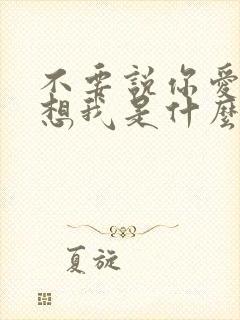 不要説你愛
想我是什麼
夏旋